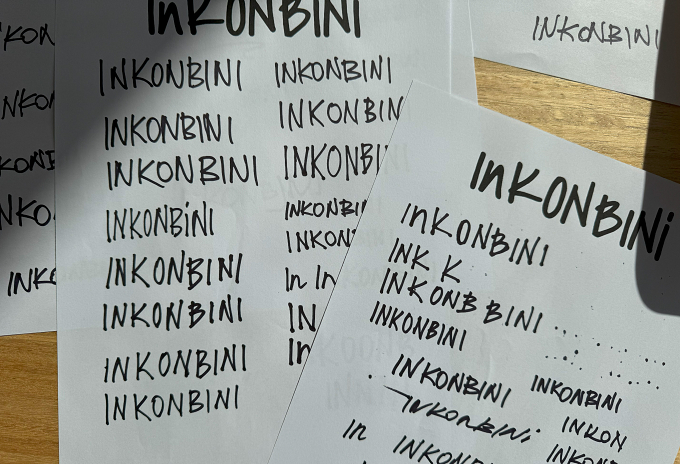 InKONBINI
INKONBINI INKONBINI
INKONBINI INKONBIN
INKONBINI INKONBI
INKONBiNI INKONBI
INKONBINI INKON
INKONBINI In In
INKONBINI IN
INKONBINI In
INKONBINI
INKONBINI
INKO
InKONBINi
InKONBINI
INK K
INKONB BINI
INKONBINI
INKONBINI INKONBINI
InKonBiNi INKON
In INKONBINI INKONB